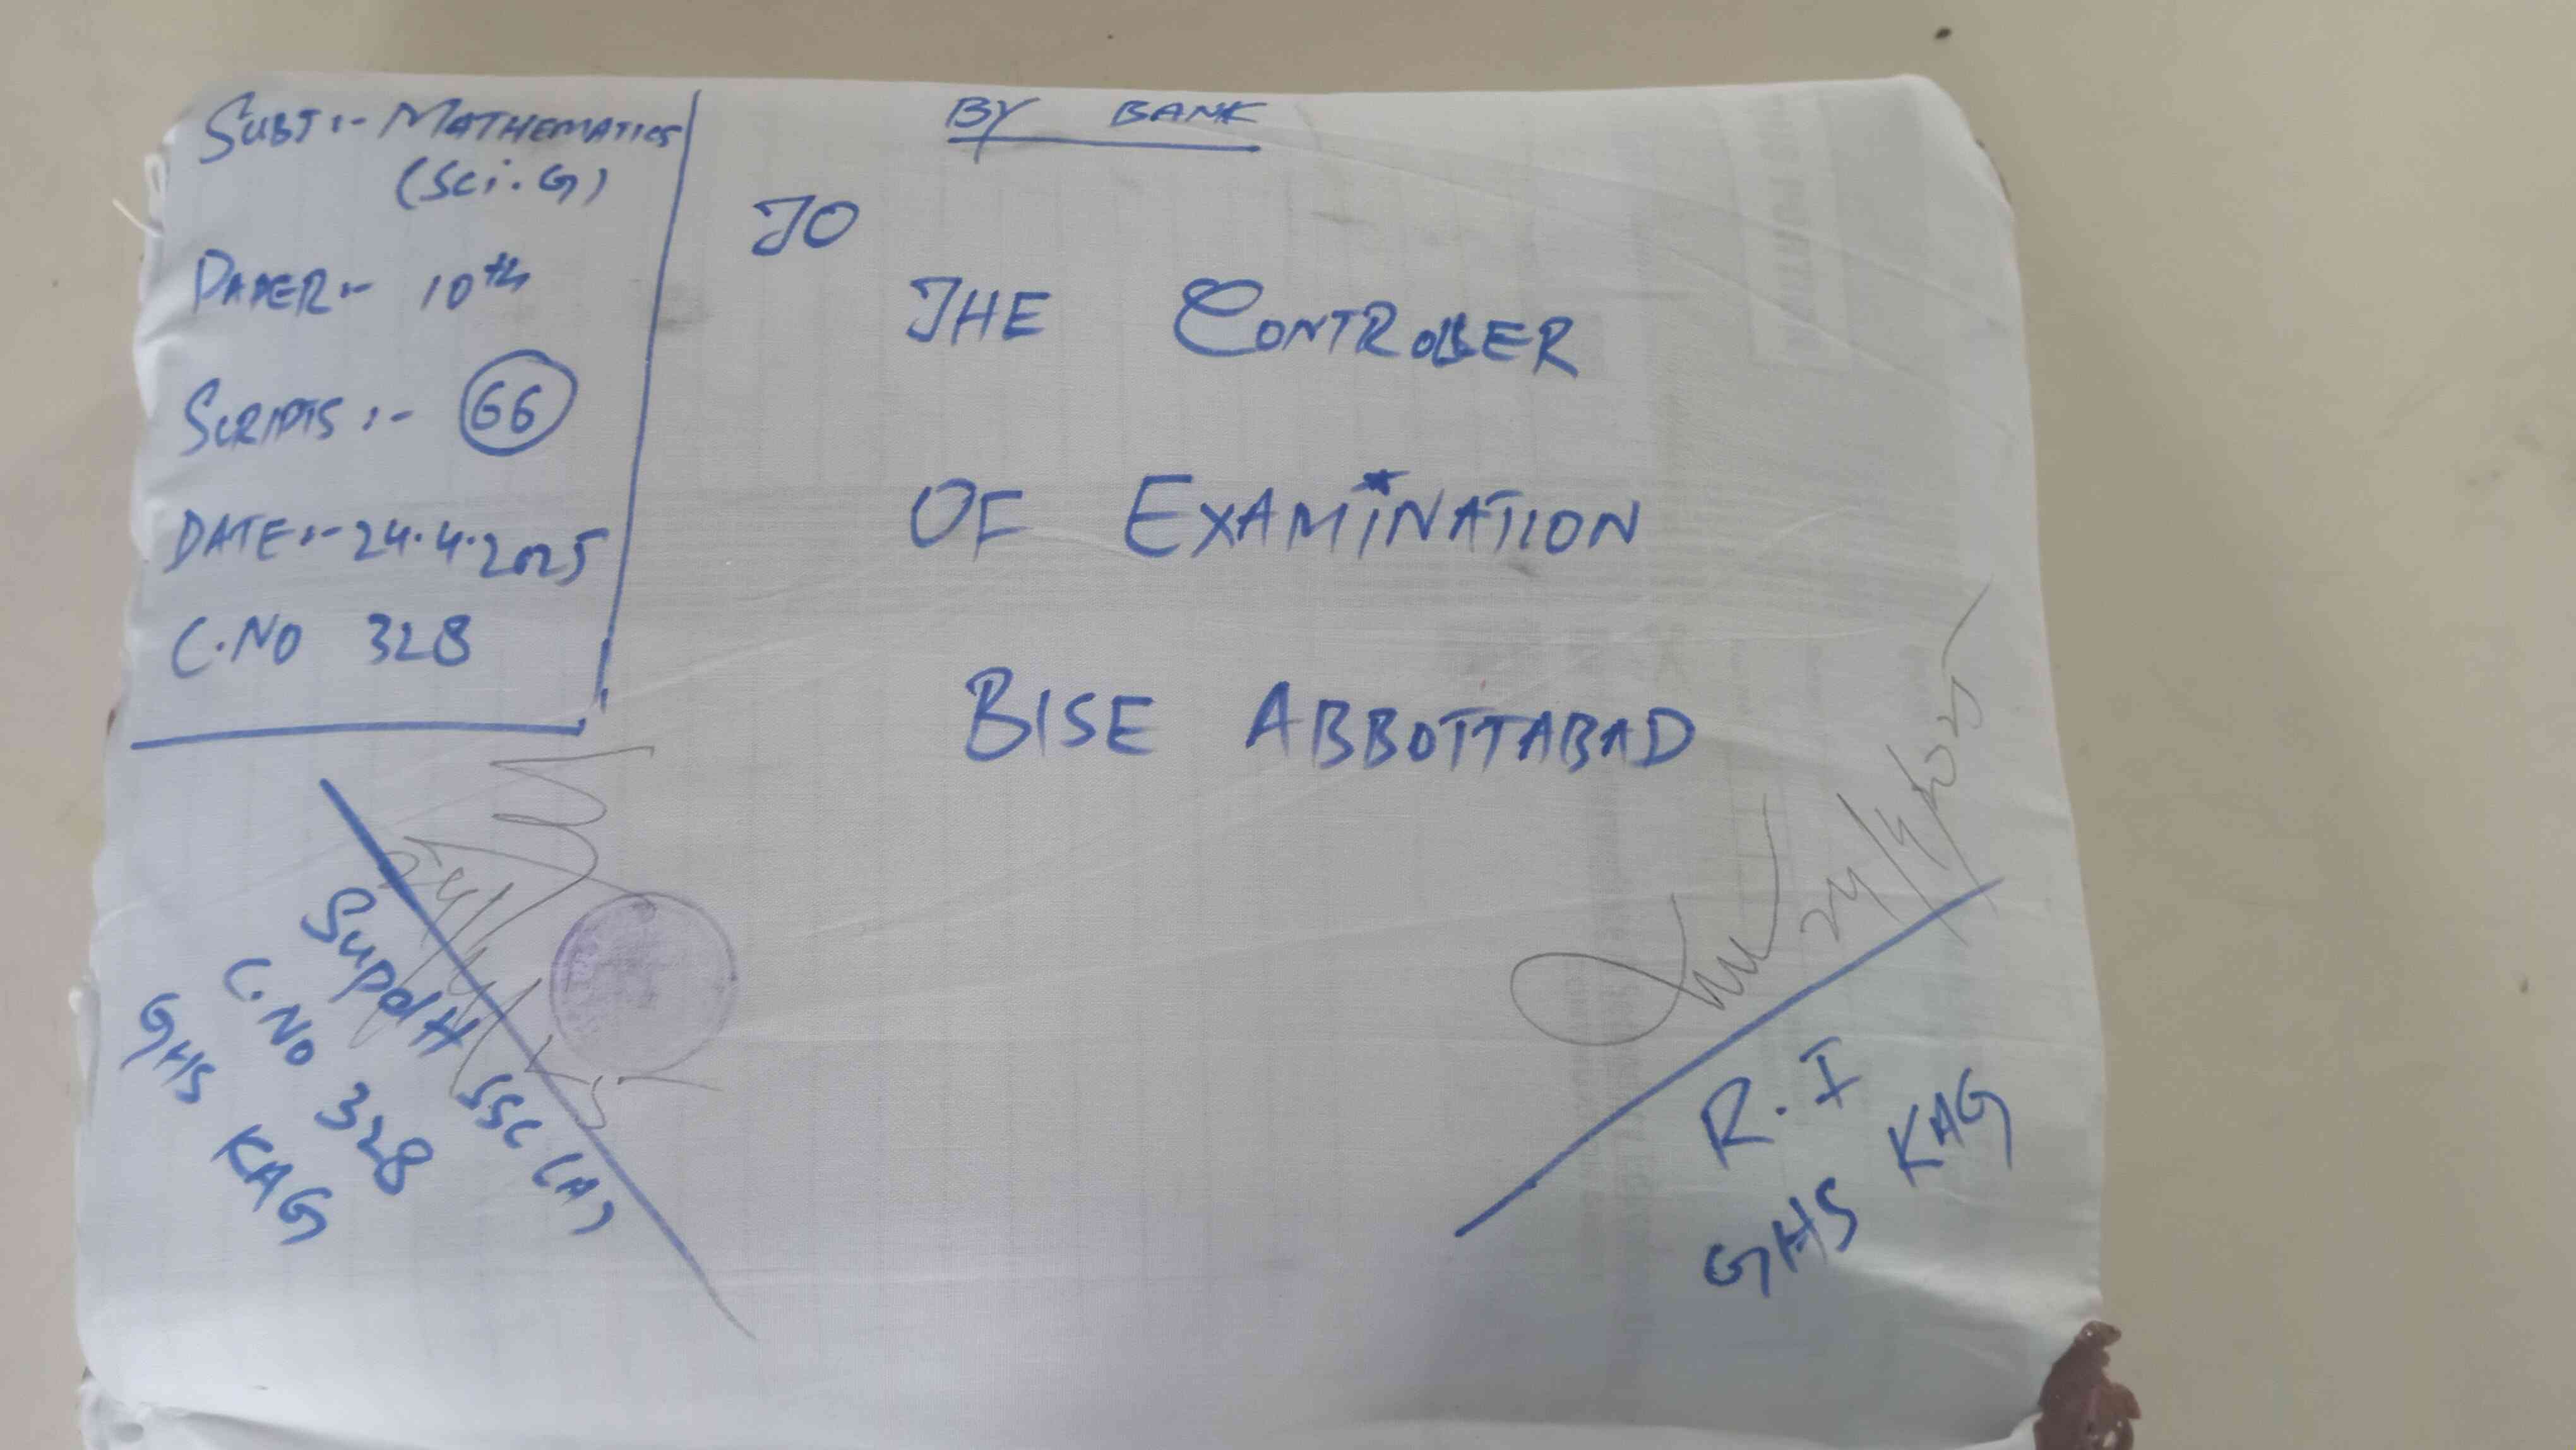 SUBJ :- MATHEMATICS
(Sci. G)
PAPER :- 10th
SCRIPTS :- 66
DATE :- 24.4.2025
C.NO 328
BY BANK
TO
THE CONTROLLER
OF EXAMINATION
BISE ABBOTTABAD
24/4/25
Supdtt SSC (A)
C.No 328
GHS KAG
24/4/2025
R.I
GHS KAG